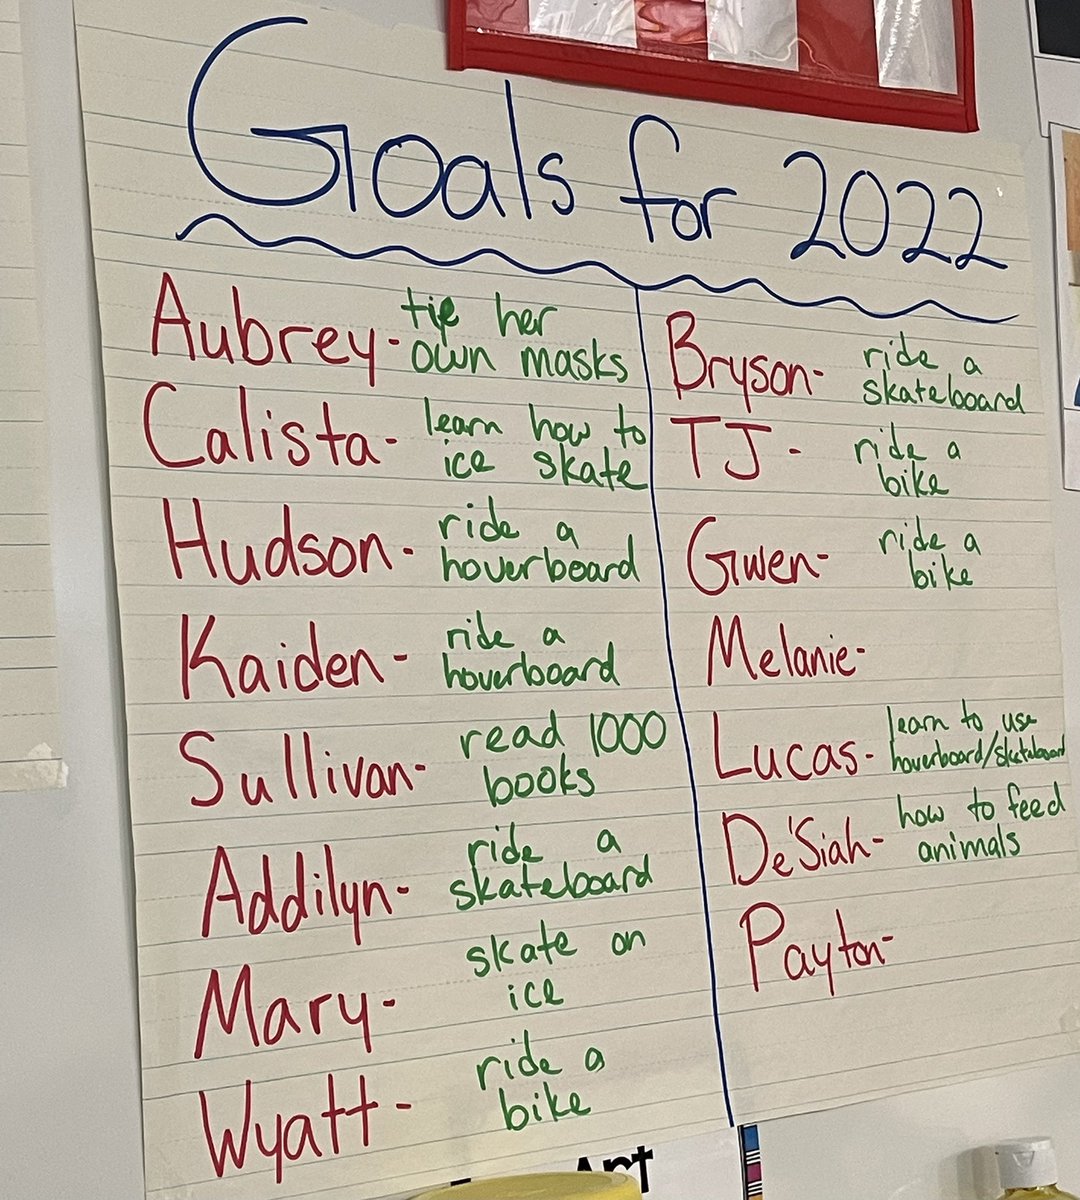 Goals for 2022
Aubrey- tie her
own masks
Calista- learn how to
ice skate
Hudson- ride a
hoverboard
Kaiden- ride a
hoverboard
Sullivan- read 1000
books
Addilyn- ride a
skateboard
Mary- skate on
ice
Wyatt- ride a
bike
Bryson- ride a
skateboard
TJ- ride a
bike
Gwen- ride a
bike
Melanie-
Lucas- learn to use
hoverboard/skateboard
De'Siah- how to feed
animals
Payton-
Art